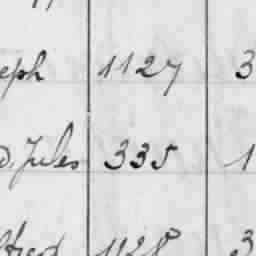 eph 1127 3
D. Jules 335 1
lfred 1128 3